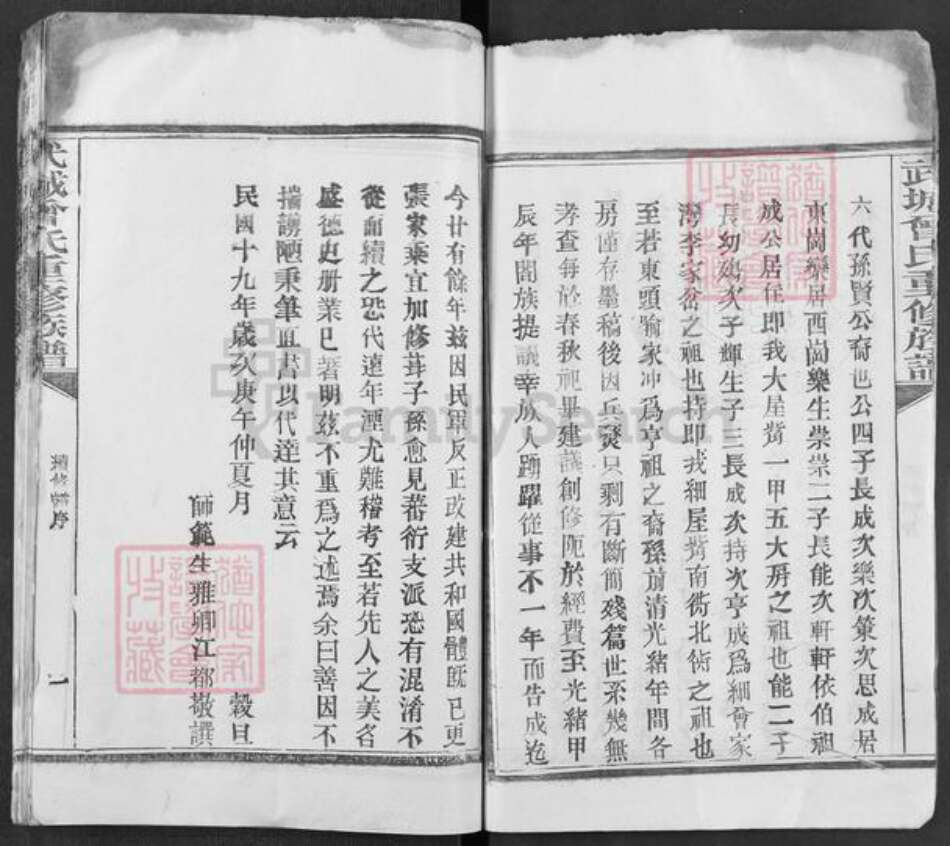 武城曾氏重修族譜
六代孫賢公裔也公四子長成次樂次策次思成居
東崗樂居西崗樂生崇崇二子長能次軒軒依伯祖
成公居任即我大屋背一甲五大房之祖也能二子
長幼次子輝生子三長成次持次亨成爲細會家
灣李家岔之祖也持即我細屋背南衖北衖之祖也
至若東頭喻家冲爲亨祖之裔孫前清光緒年間各
房僅存墨稿後因兵燹只剩有斷簡殘篇世系幾無
考查每於春秋祀畢建議創修阨於經費至光緒甲
辰年闔族提議幸族人踴躍從事不一年而告成迄
今廿有餘年茲因民軍反正改建共和國體既已更
張家乘宜加修葺子孫愈見蕃衍支派恐有混淆不
從而續之恐代遠年湮尤難稽考至若先人之美名
盛德史册業已著明茲不重爲之述焉余曰善因不
揣譾陋秉筆直書以代達其意云
民國十九年歲次庚午仲夏月 穀旦
師範生雅卿江都敬譔
武城曾氏重修族譜
續修譜序
一
FamilySearch